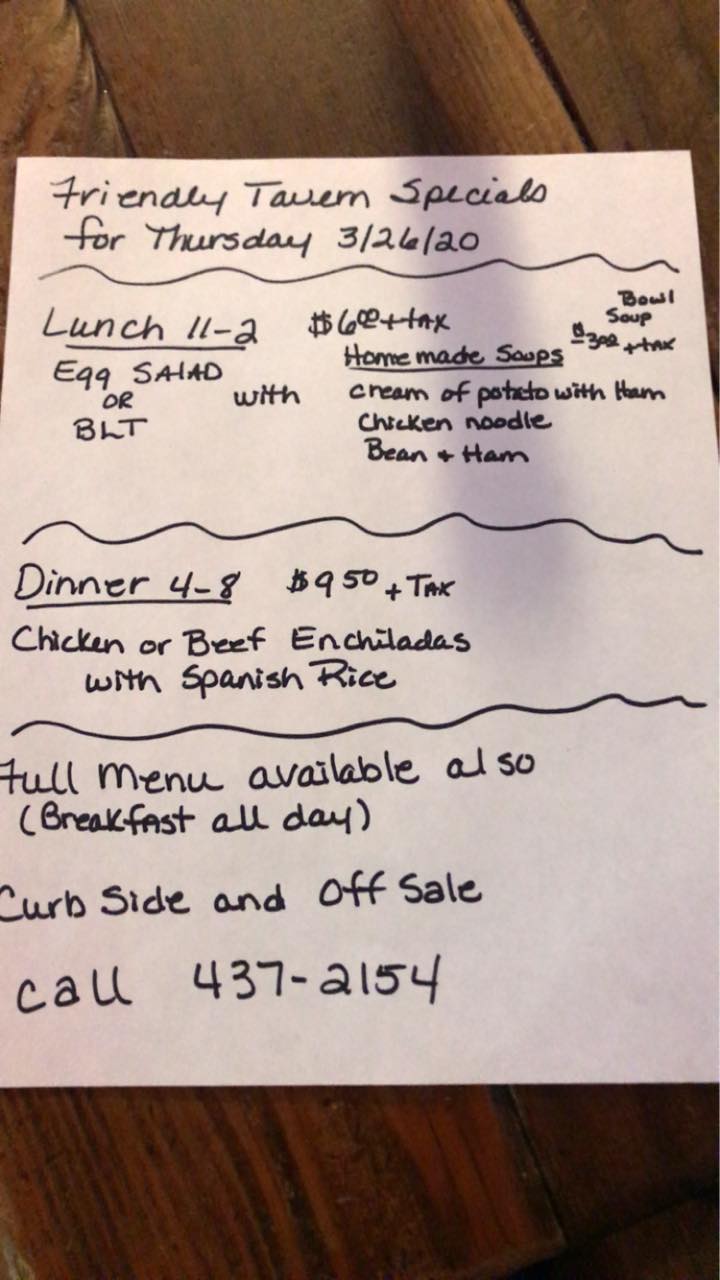 Friendly Tavern Specials
for Thursday 3/26/20
Lunch 11-2 $6.00 + tax
Bowl
Soup
$3.00 + tax
Egg SALAD
OR
BLT
with
Homemade Soups
cream of potato with Ham
Chicken noodle
Bean + Ham
Dinner 4-8 $9.50 + TAX
Chicken or Beef Enchiladas
with Spanish Rice
Full Menu available also
(Breakfast all day)
Curb Side and Off Sale
call 437-2154